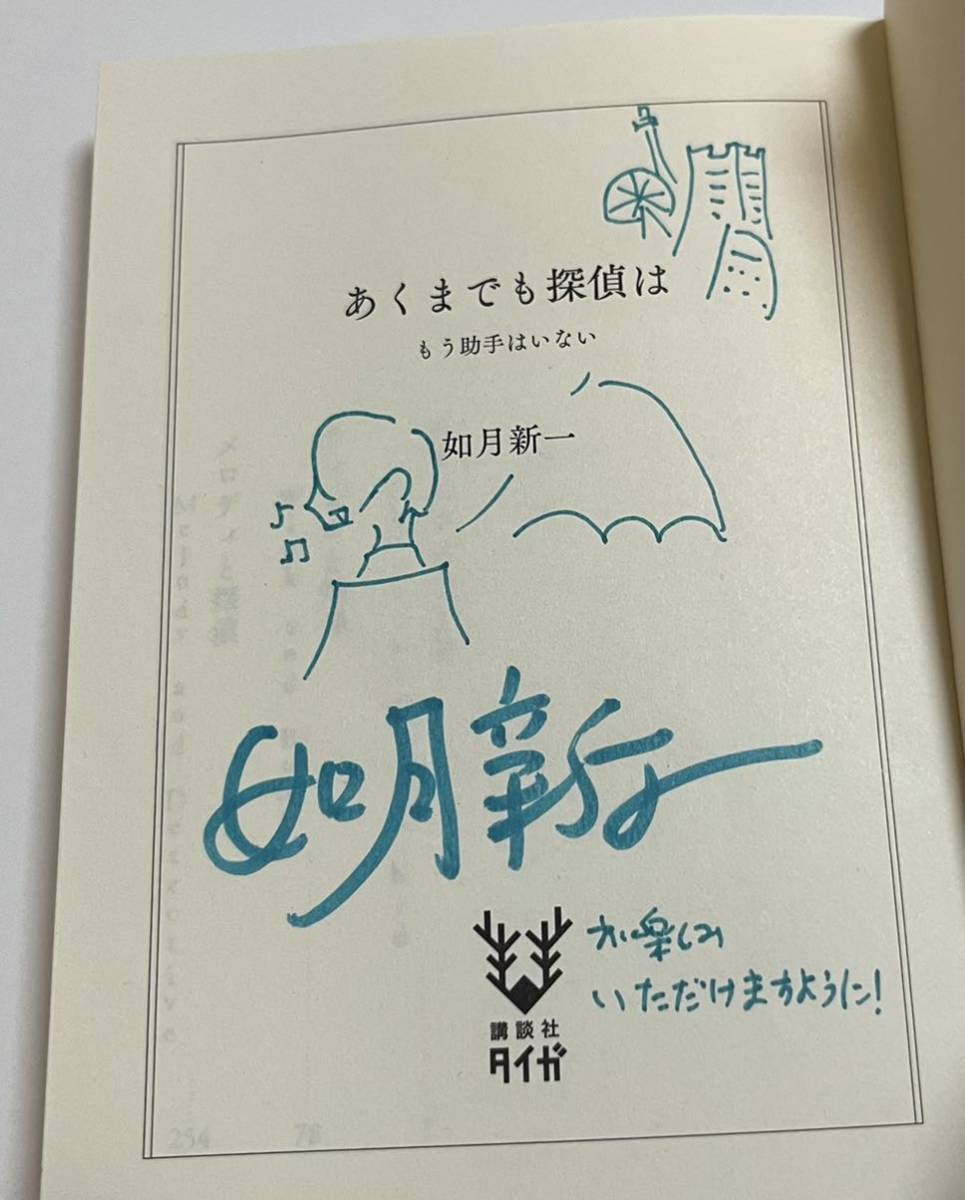 あくまでも探偵は
もう助手はいない
如月新一
如月新一
お楽しみ
いただけますように!
講談社
タイガ
メロディと探偵
254
78